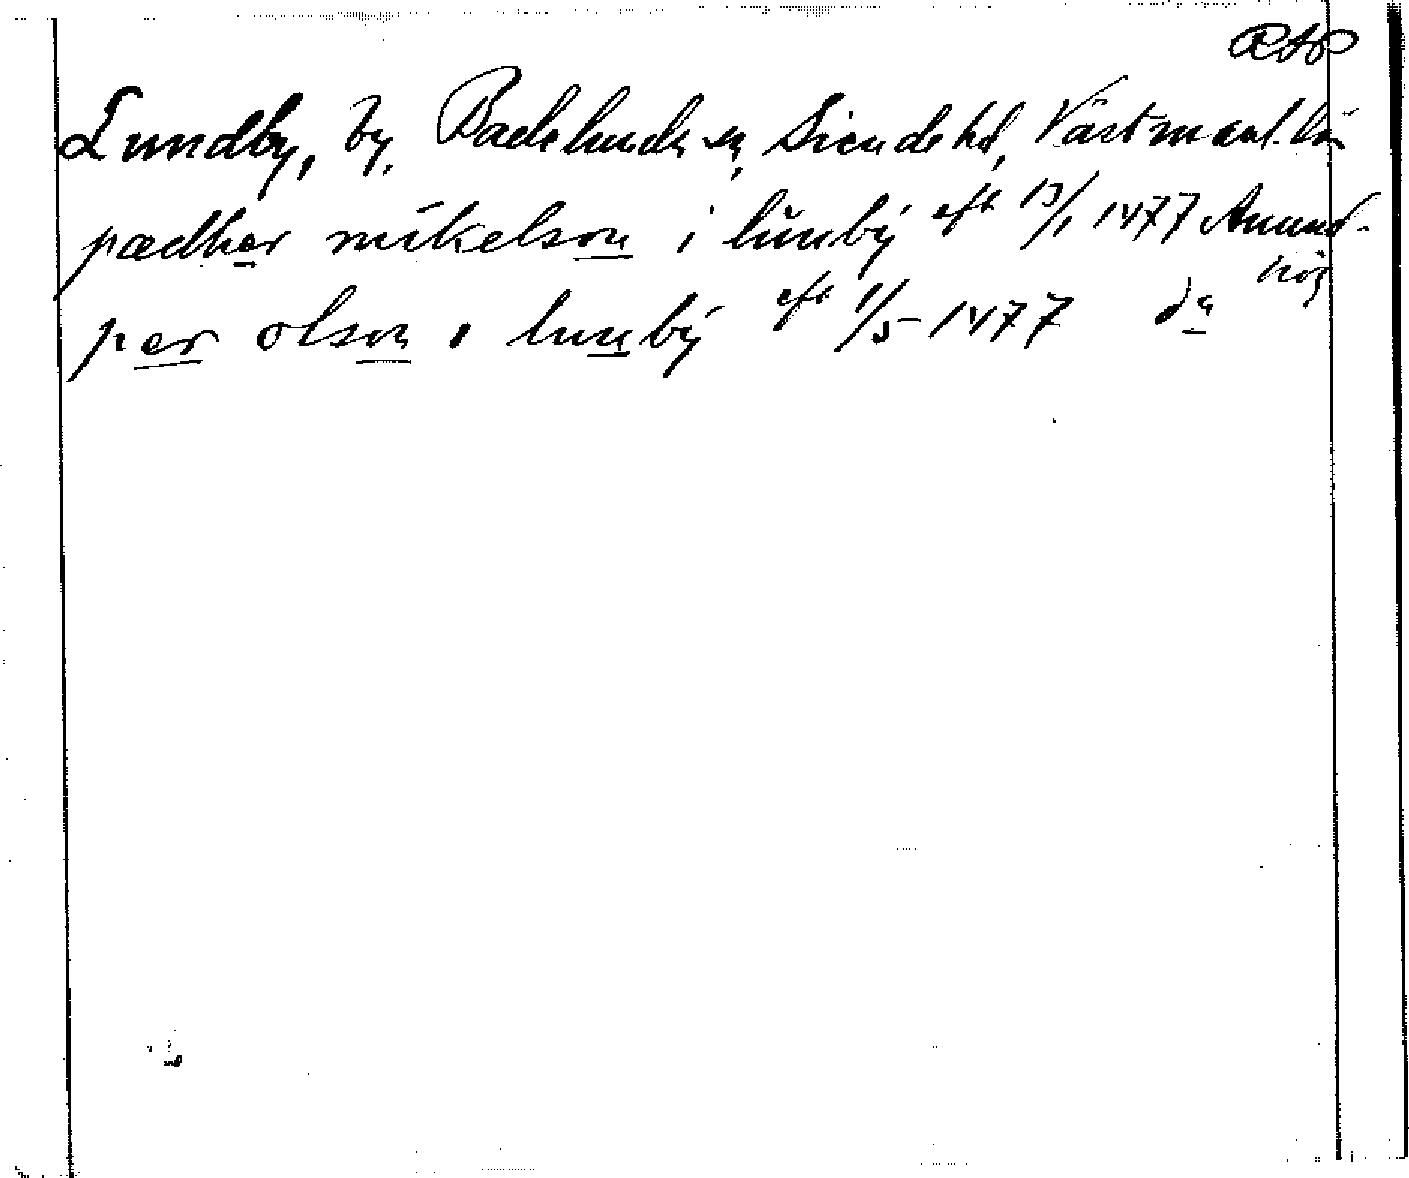 RAP
Lundby, by, Badelunda sn, Siende hd, Västmanl. län
pædher mikelson i lŭnbÿ eft 13/1 1477 Anund-
hög
per olson i lunbÿ eft 1/5 1477 da